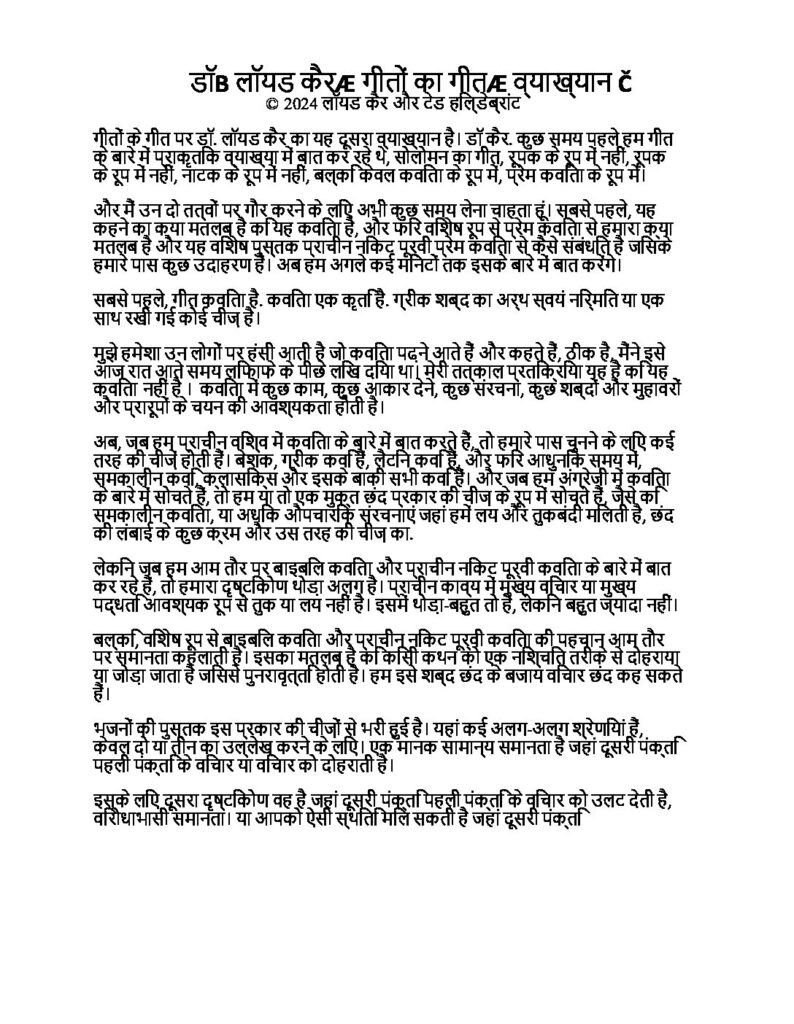 डॉB लॉयड कैरÆ गीतों का गीतÆ व्याख्यान Č
© 2024 लॉयड कैर और टेड हिल्डेब्रांट
गीतों के गीत पर डॉ. लॉयड कैर का यह दूसरा व्याख्यान है। डॉ कैर. कुछ समय पहले हम गीत
के बारे में प्राकृतिक व्याख्या में बात कर रहे थे, सोलोमन का गीत, रूपक के रूप में नहीं, रूपक
के रूप में नहीं, नाटक के रूप में नहीं, बल्कि केवल कविता के रूप में, प्रेम कविता के रूप में।
और मैं उन दो तत्वों पर गौर करने के लिए अभी कुछ समय लेना चाहता हूं। सबसे पहले, यह
कहने का क्या मतलब है कि यह कविता है, और फिर विशेष रूप से प्रेम कविता से हमारा क्या
मतलब है और यह विशेष पुस्तक प्राचीन निकट पूर्वी प्रेम कविता से कैसे संबंधित है जिसके
हमारे पास कुछ उदाहरण हैं। अब हम अगले कई मिनटों तक इसके बारे में बात करेंगे।
सबसे पहले, गीत कविता है. कविता एक कृति है. ग्रीक शब्द का अर्थ स्वयं निर्मित या एक
साथ रखी गई कोई चीज़ है।
मुझे हमेशा उन लोगों पर हंसी आती है जो कविता पढ़ने आते हैं और कहते हैं, ठीक है, मैंने इसे
आज रात आते समय लिफाफे के पीछे लिख दिया था। मेरी तत्काल प्रतिक्रिया यह है कि यह
कविता नहीं है । कविता में कुछ काम, कुछ आकार देने, कुछ संरचना, कुछ शब्दों और मुहावरों
और प्रारूपों के चयन की आवश्यकता होती है।
अब, जब हम प्राचीन विश्व में कविता के बारे में बात करते हैं, तो हमारे पास चुनने के लिए कई
तरह की चीज़ें होती हैं। बेशक, ग्रीक कवि हैं, लैटिन कवि हैं, और फिर आधुनिक समय में,
समकालीन कवि, क्लासिक्स और इसके बाकी सभी कवि हैं। और जब हम अंग्रेजी में कविता
के बारे में सोचते हैं, तो हम या तो एक मुक्त छंद प्रकार की चीज़ के रूप में सोचते हैं, जैसे कि
समकालीन कविता, या अधिक औपचारिक संरचनाएं जहां हमें लय और तुकबंदी मिलती है, छंद
की लंबाई के कुछ क्रम और उस तरह की चीज़ का.
लेकिन जब हम आम तौर पर बाइबिल कविता और प्राचीन निकट पूर्वी कविता के बारे में बात
कर रहे हैं, तो हमारा दृष्टिकोण थोड़ा अलग है। प्राचीन काव्य में मुख्य विचार या मुख्य
पद्धति आवश्यक रूप से तुक या लय नहीं है। इसमें थोड़ा-बहुत तो है, लेकिन बहुत ज्यादा नहीं।
बल्कि, विशेष रूप से बाइबिल कविता और प्राचीन निकट पूर्वी कविता की पहचान आम तौर
पर समानता कहलाती है। इसका मतलब है कि किसी कथन को एक निश्चित तरीके से दोहराया
या जोड़ा जाता है जिससे पुनरावृत्ति होती है। हम इसे शब्द छंद के बजाय विचार छंद कह सकते
हैं।
भजनों की पुस्तक इस प्रकार की चीजों से भरी हुई है। यहां कई अलग-अलग श्रेणियां हैं,
केवल दो या तीन का उल्लेख करने के लिए। एक मानक सामान्य समानता है जहां दूसरी पंक्ति
पहली पंक्ति के विचार या विचार को दोहराती है।
इसके लिए दूसरा दृष्टिकोण वह है जहां दूसरी पंक्ति पहली पंक्ति के विचार को उलट देती है,
विरोधाभासी समानता। या आपको ऐसी स्थिति मिल सकती है जहां दूसरी पंक्ति